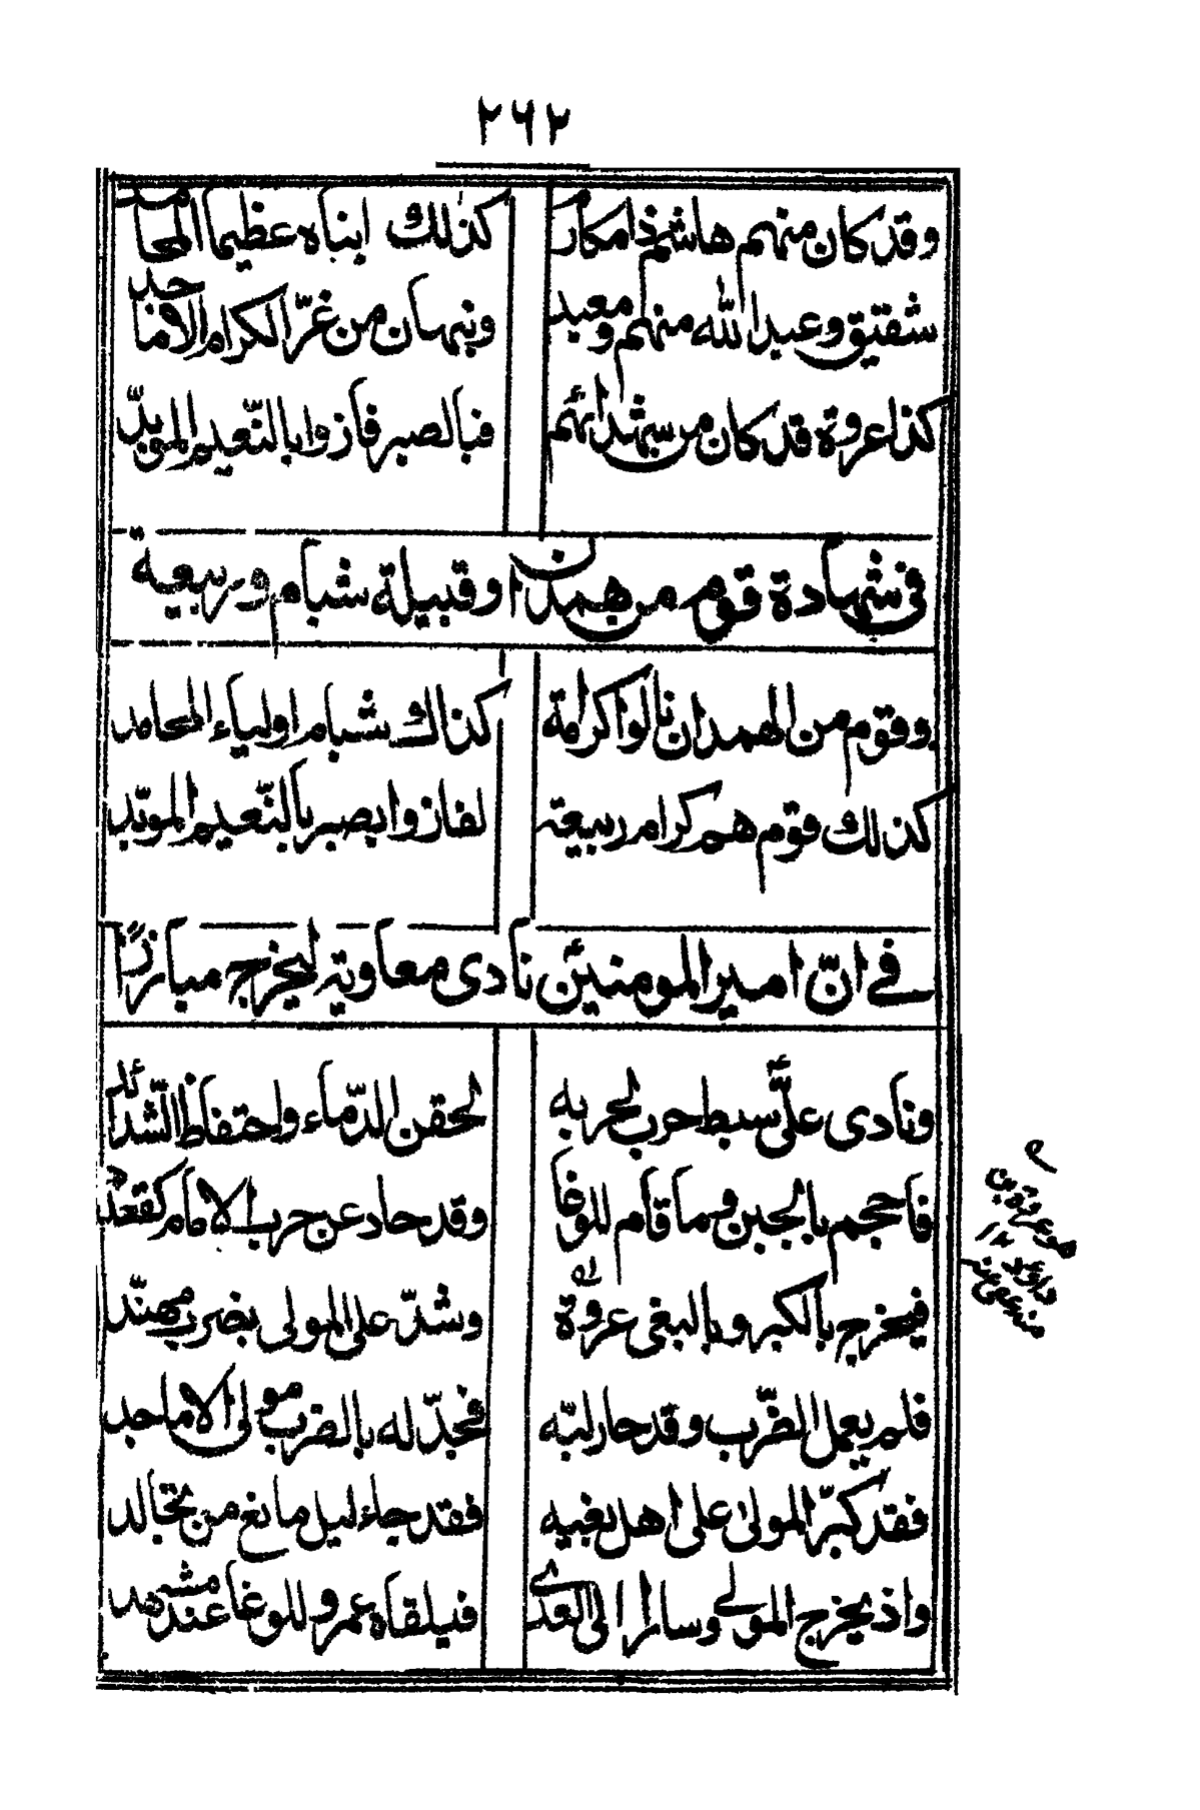 ٢٦٢
وقد كان منهم هاشم ذا مكارم كذلك ابناه عظيما المحامد
شقيق وعبد الله منهم ومعبد ونبهان من غرّ الكرام الاماجد
كذا عروة قد كان من شهدائهم فبالصبر فازوا بالنّعيم المؤيدّ
فى شهادة قوم من همدان وقبيلة شبام وربيعة
وقوم من الهمدان نالوا كرامة كذاك شبام اولياء المحامد
كذلك قوم هم كرام ربيعة لفازوا بصبر بالنّعيم الموبّد
في انّ امير المومنين نادى معاوية ليخرج مبارزًا
ونادى علىّ سبط حرب لحربه لحقن الدّماء واحتفاظ الشّدائد
فاحجم بالجبن وما قام للوغا وقد حاد عن حرب الامام كقعدد
فيخرج بالكبر وبالبغى عروة وشدّ على المولى بضرب مهنّد
فلم يعمل الضّرب وقد حار لبّه فجدّله بالضرب مولى الاماجد
فقد كبّر المولى على اهل بغيه فقد جاء ليل مانع من تجالد
واذ يخرج المولى وسار الى العدى فيلقاه عمرو للوغا عند مشهد